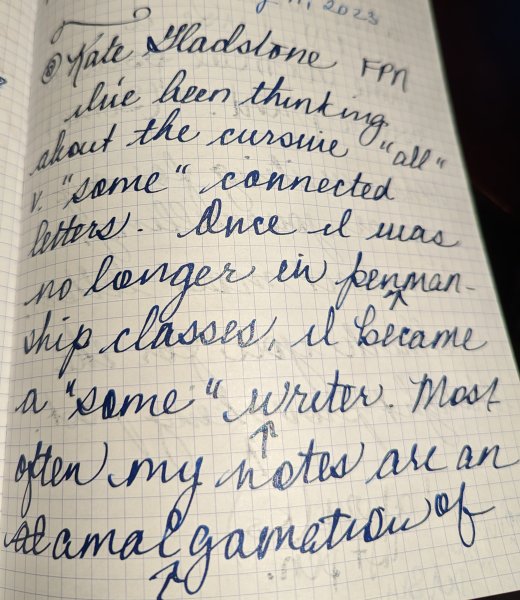 11, 2023
@ Kate Gladstone FPN
I've been thinking
about the cursive "all"
v. "some" connected
letters. Once I was
no longer in penman-
ship classes, I became
a "some" writer. Most
often my notes are an
amalgamation of